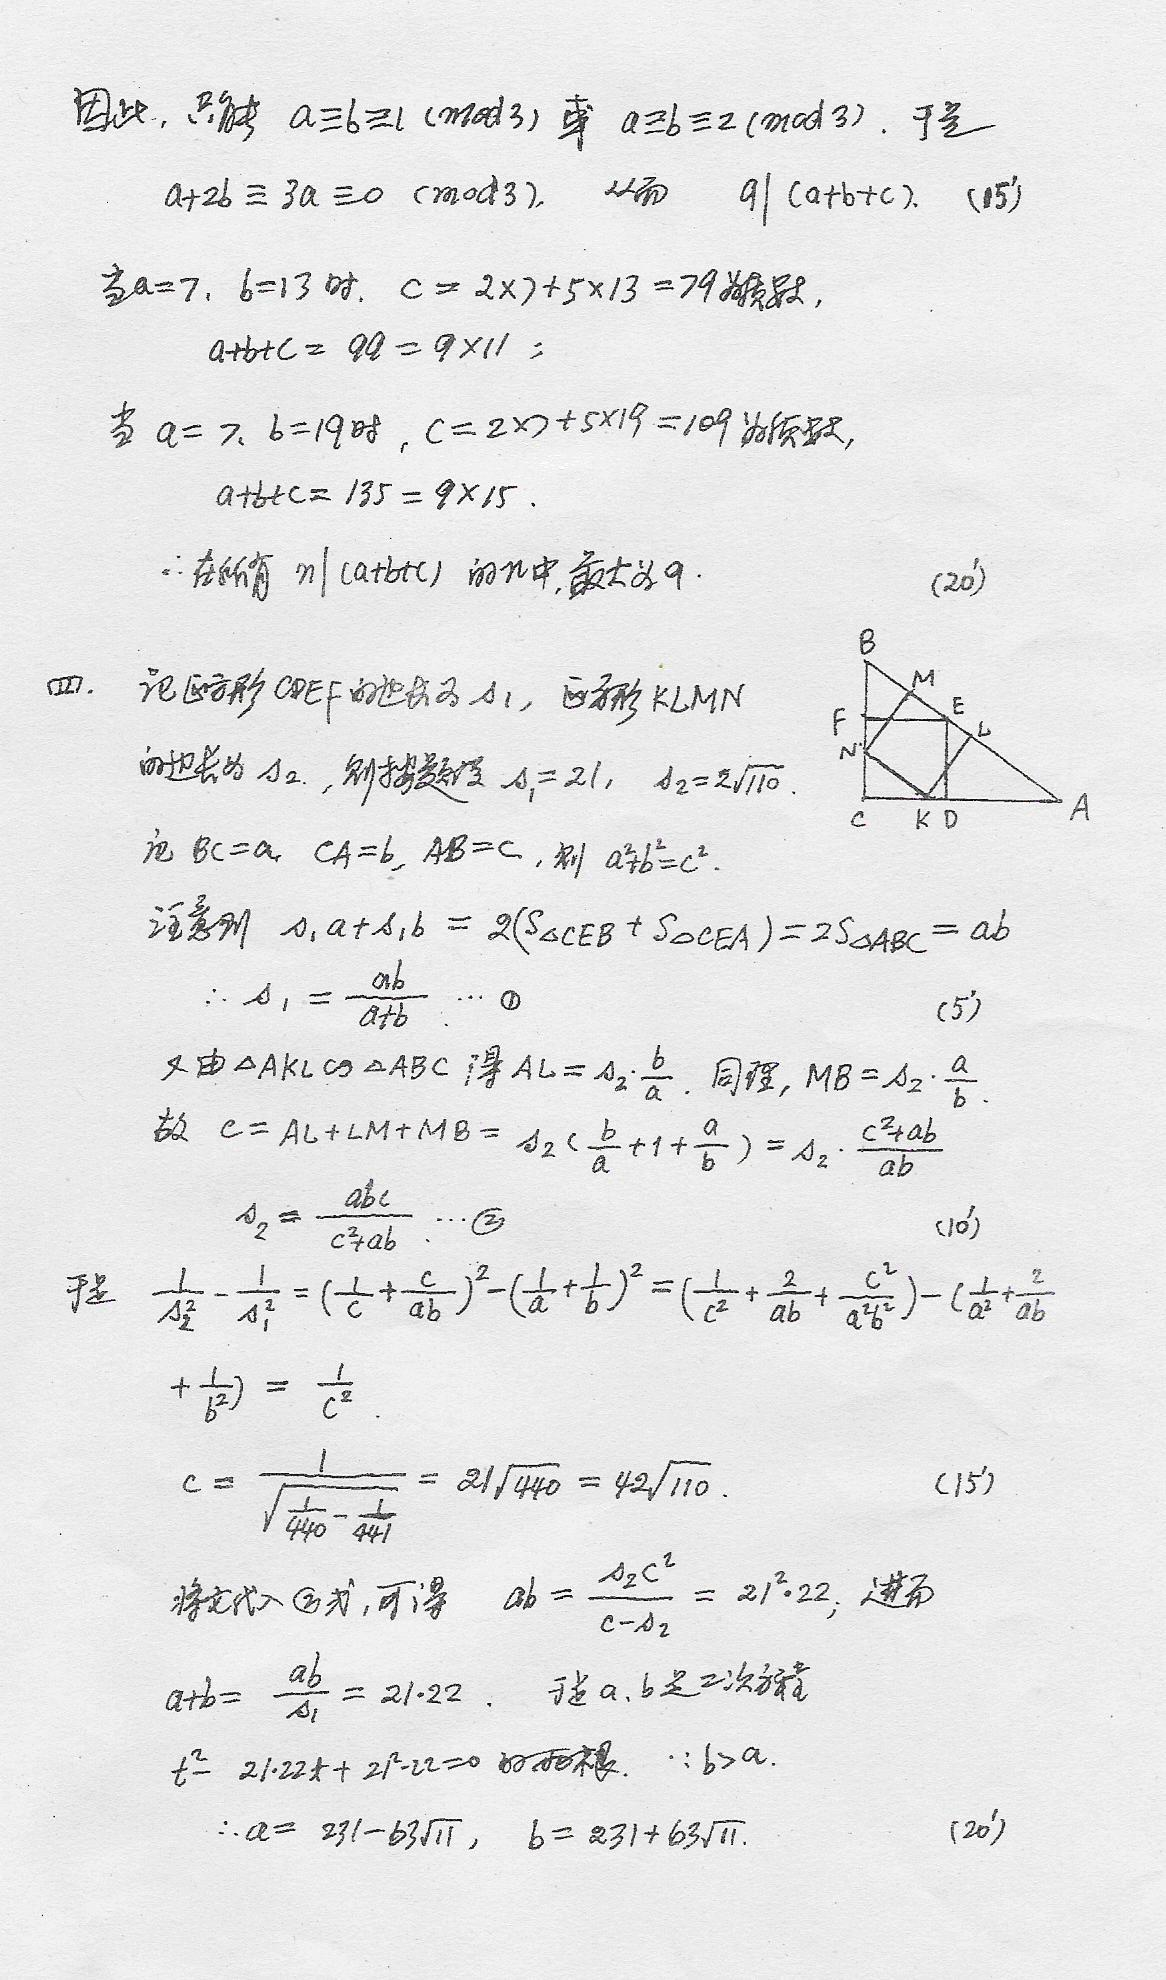 因此, 只能 a≡b≡1 (mod 3) 或 a≡b≡2 (mod 3). 于是
a+2b ≡ 3a ≡ 0 (mod 3). 从而 9|(a+b+c). (15')
当 a=7, b=13 时, c = 2×7+5×13 = 79 为质数,
a+b+c = 99 = 9×11;
当 a=7, b=19 时, c = 2×7+5×19 = 109 为质数,
a+b+c = 135 = 9×15.
∴在所有 n|(a+b+c) 的n中, 最大为9. (20')
四. 记正方形CDEF的边长为 s₁, 正方形KLMN
的边长为 s₂, 则按题设 s₁=21, s₂=2√110.
B
M
F
E
N
L
C K D A
记 BC=a, CA=b, AB=c, 则 a²+b²=c².
注意到 s₁a+s₁b = 2(S△CEB + S△CEA) = 2S△ABC = ab
∴ s₁ = ab/(a+b) …① (5')
又由△AKL∽△ABC 得 AL = s₂·b/a. 同理, MB = s₂·a/b.
故 c = AL+LM+MB = s₂(b/a+1+a/b) = s₂·(c²+ab)/ab
s₂ = abc/(c²+ab) …② (10')
于是 1/s₂² - 1/s₁² = (1/c + c/ab)² - (1/a + 1/b)² = (1/c² + 2/ab + c²/a²b²) - (1/a² + 2/ab
+ 1/b²) = 1/c².
c = 1/√(1/440 - 1/441) = 21√440 = 42√110. (15')
将之代入②式, 可得 ab = s₂c²/(c-s₂) = 21²·22; 进而
a+b = ab/s₁ = 21·22. 于是 a、b是二次方程
t² - 21·22t + 21²·22=0 的两根. ∵b>a.
∴a = 231-63√11, b = 231+63√11. (20')